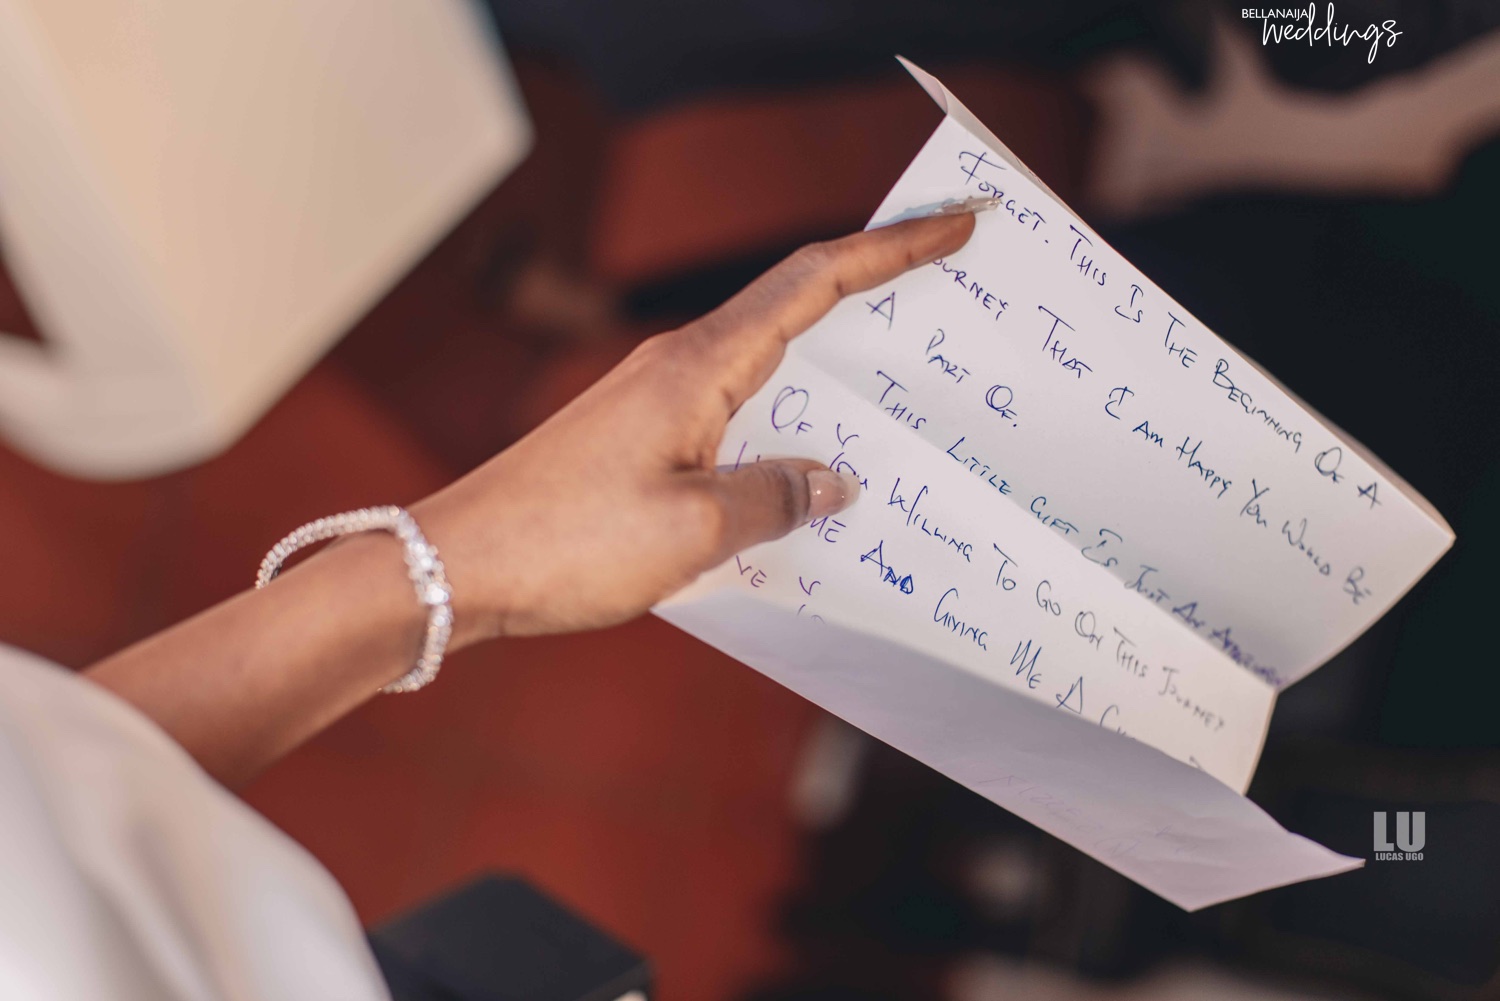 BELLANAIJA
weddings
FORGET. THIS IS THE BEGINNING OF A
OURNEY THAT I AM HAPPY YOU WOULD BE
A PART OF.
THIS LITTLE GIFT IS JUST AN
OF YOU WILLING TO GO ON THIS JOURNEY
ME AND GIVING ME A
VE
LU
LUCAS UGO